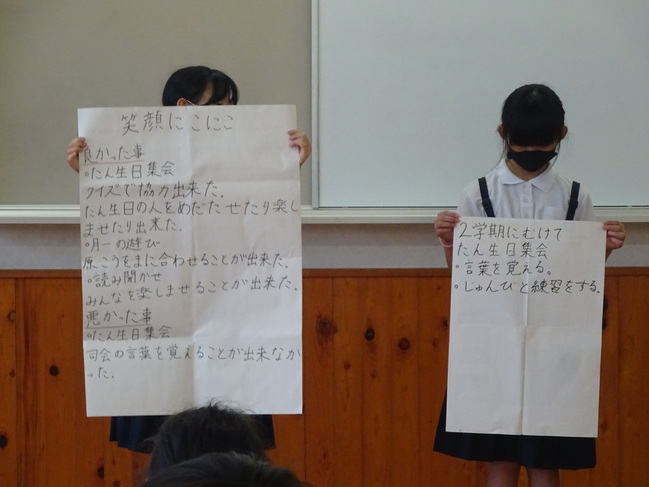 笑顔にこにこ
良かった事
°たん生日集会
クイズで協力出来た。
たん生日の人をめだたせたり楽し
ませたり出来た。
°月一の遊び
原こうをまに合わせることが出来た。
°読み聞かせ
みんなを楽しませることが出来た。
悪かった事
°たん生日集会
司会の言葉を覚えることが出来なか
った。
2学期にむけて
たん生日集会
°言葉を覚える。
°じゅんびと練習をする。